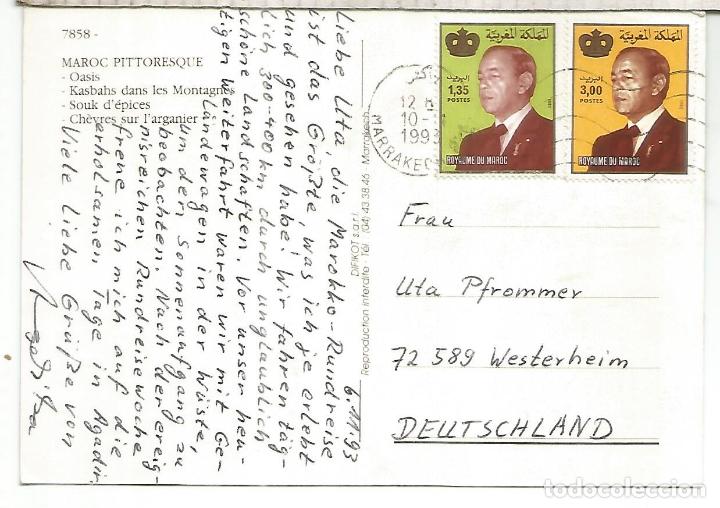 7858 -
MAROC PITTORESQUE
- Oasis
- Kasbahs dans les Montagnes
- Souk d'épices
- Chèvres sur l'arganier
6.11.93
Liebe Uta, die Marokko-Rundreise
ist das Größte, was ich je erlebt
und gesehen habe! Wir fahren täg-
lich 300-400 km durch unglaublich
schöne Landschaften. Vor unser heu-
tigen Weiterfahrt waren wir mit Ge-
ländewagen in der Wüste,
um den Sonnenaufgang zu
beobachten. Nach der ereig-
nisreichen Rundreisewoche
freue ich mich auf die
erholsamen Tage in Agadir.
Viele liebe Grüße von
DIFIKOT s.a.r.l
Reproduction interdite - Tél. (04) 43 38 46 - Marrakech
مراكش
12 H
10-
1993
MARRAKECH
المملكة المغربية
البريد
1,35
POSTES
ROYAUME DU MAROC
المملكة المغربية
البريد
3,00
POSTES
ROYAUME DU MAROC
Frau
Uta Pfrommer
72 589 Westerheim
DEUTSCHLAND
todocoleccion.net